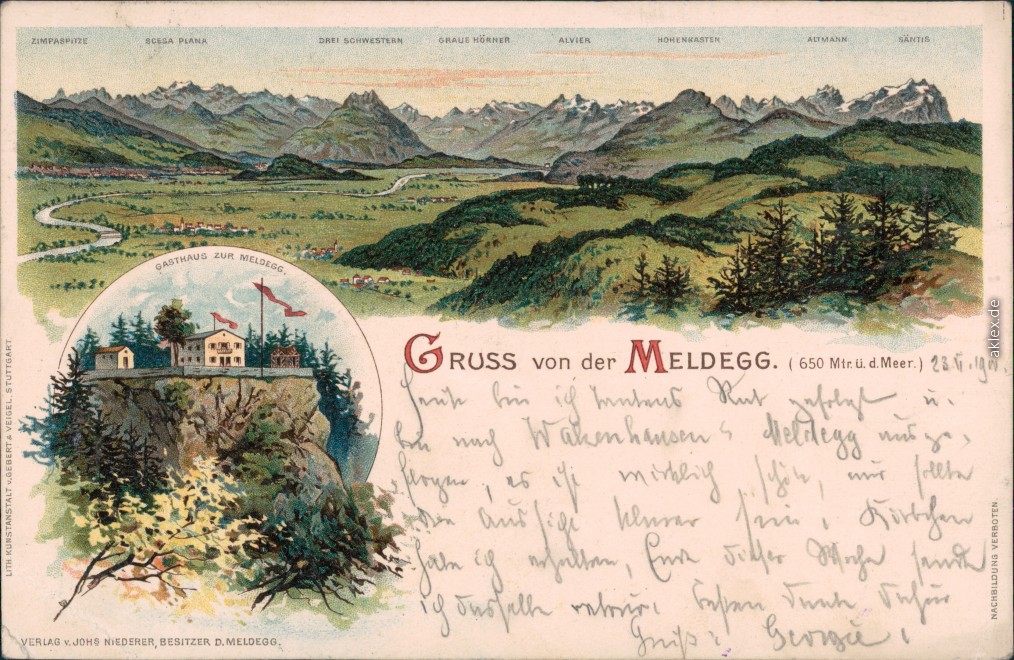 ZIMPASPITZE SCESA PLANA DREI SCHWESTERN GRAUE HÖRNER ALVIER HOHENKASTEN ALTMANN SÄNTIS
GASTHAUS ZUR MELDEGG.
GRUSS VON DER MELDEGG. (650 Mtr. ü. d. Meer.) 23. VI. 1901.
Heute bin ich Tantens Rat gefolgt u.
bin nach Walzenhausen Meldegg ausge-
flogen, es ist wirklich schön, nur sollte
die Aussicht klarer sein. Körbchen
habe ich erhalten, Ende dieser Woche sende
ich dasselbe retour. Besten Dank dafür
Gruß Georgie
LITH. KUNSTANSTALT v. GEBERT & VEIGEL, STUTTGART.
VERLAG v. JOHS NIEDERER, BESITZER D. MELDEGG.
NACHBILDUNG VERBOTEN.
aklex.de